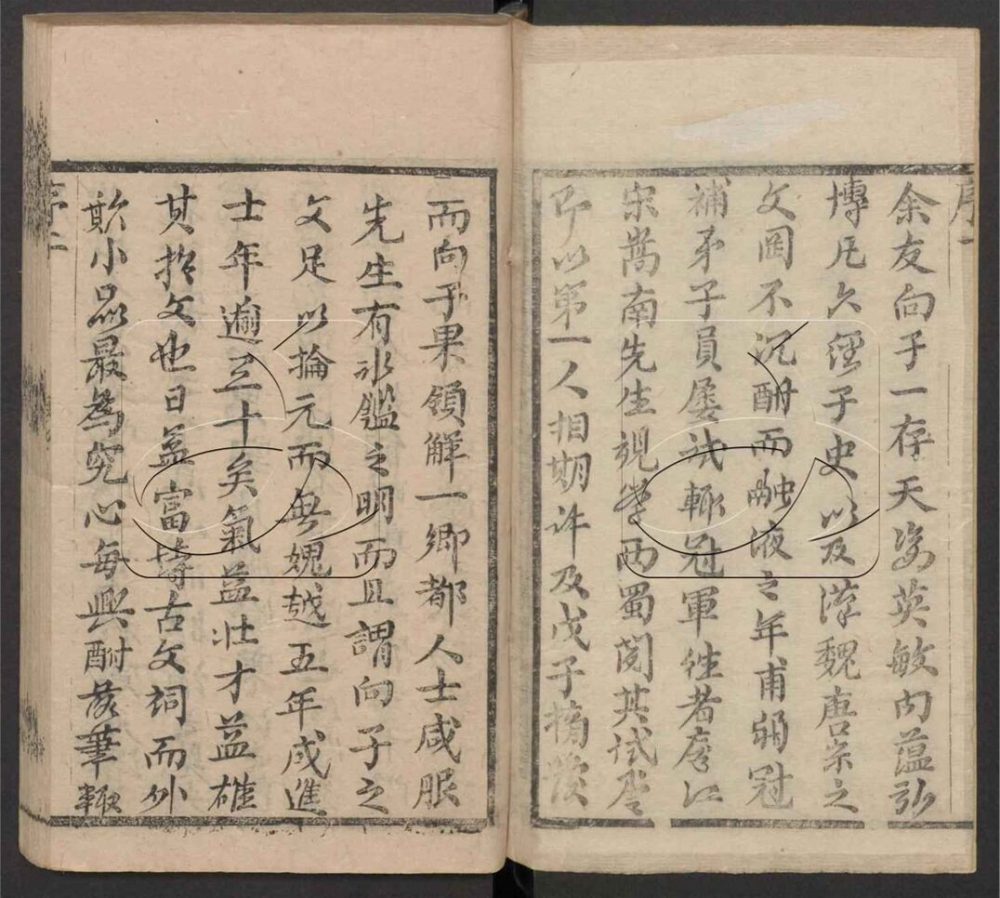 序一
余友向子一存天姿英敏內蘊弘
博凡六經子史以及漢魏唐宋之
文罔不沉酣而融液之年甫弱冠
補弟子員屢試輒冠軍徃者廬江
宋嵩南先生視學西蜀閱其試卷
即以第一人相期许及戊子摘发
而向子果領解一鄉都人士咸服
先生有氷鑑之明而且謂向子之
文足以掄元而無媿越五年成進
士年逾三十矣氣益壯才益雄
其於文也日益富詩古文詞而外
欵小品最為究心每興酣落筆輙
序二